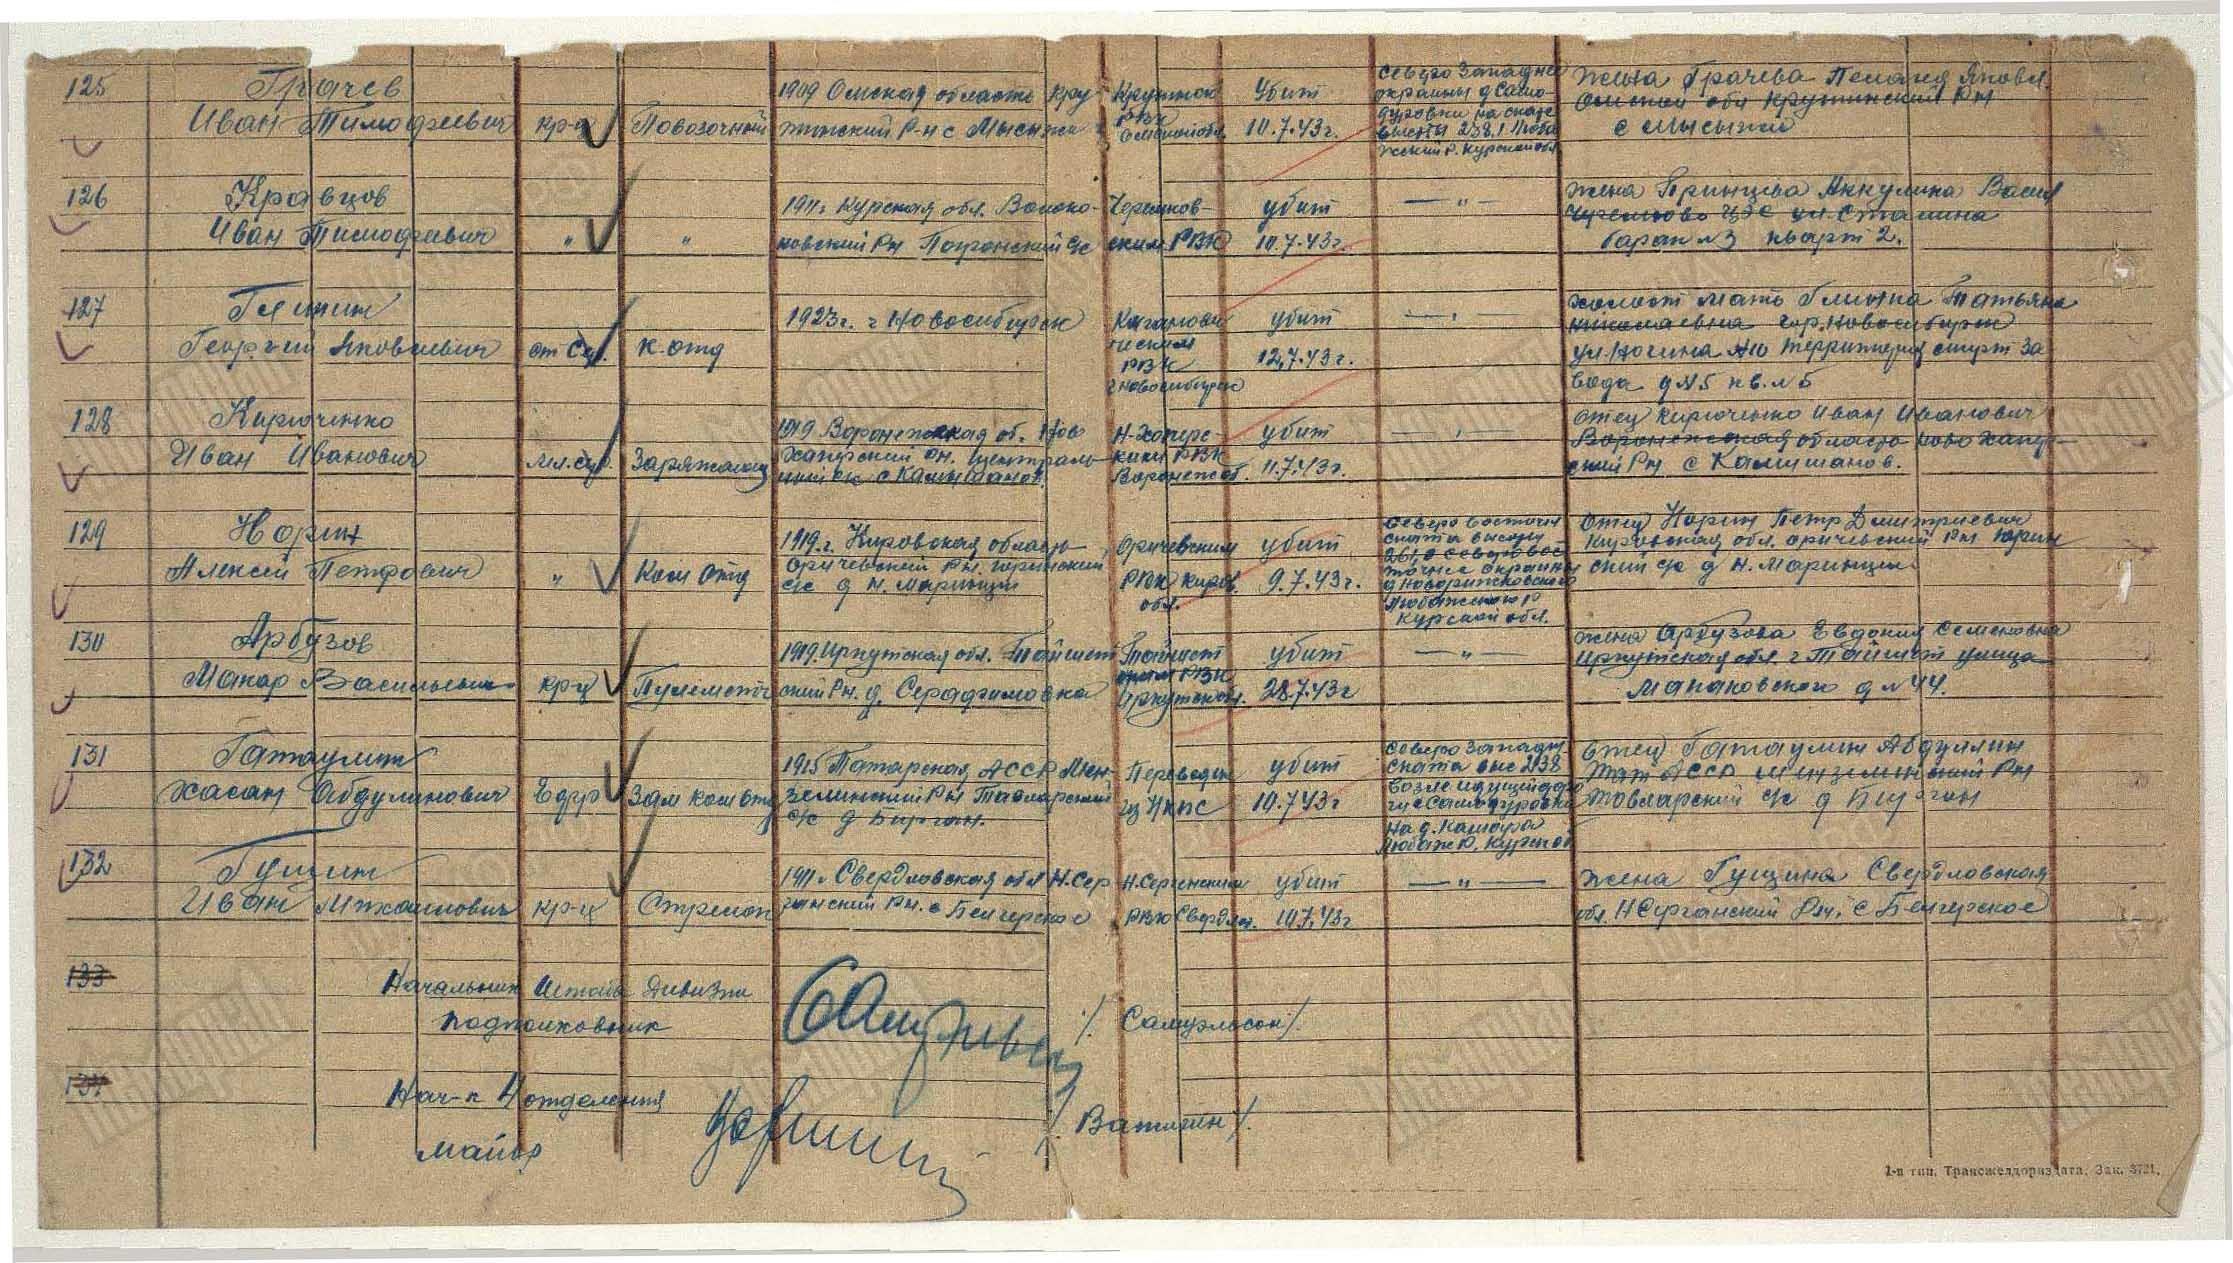 125
Грачев
Иван Тимофеевич
кр-ц
Повозочный
1909 Омская область Кру
тинский Р-н с Мысы
Крутинск
РВК
Омской обл.
Убит
10.7.43г.
Северо Западнее
окраины д Само
дуровки на скате
высоты 238,1 Поны
Курской обл
Жена Грачева Яковл.
Омская обл Крутинский Рн
с Мысы
126
Кравцов
Иван Тимофеевич
"
"
1911г Курская обл. Волоко-
новский Рн Сс
Черемнов-
ским РВК
убит
10.7.43г.
— " —
Жена Акулина Васил
ул. Сталина
барак №3 кварт 2.
127
Глинин
Георгий Яковлевич
ст Сер.
К-отд
1923г. г Новосибирск
Каганови
ческим
РВК
г Новосибирск
убит
12,7.43г.
— " —
холост мать Глинина Татьяна
Николаевна гор. Новосибирск
ул. Ногина №10 территория спирт за
вода д №5 кв. №5
128
Кирюченко
Иван Иванович
мл. сер.
Заряжающ
1919 Воронежская об. Ново
Хоперский рн. Централь
ный сс с Калиманов.
Н-Хоперс-
ким РВК
Воронеж об.
убит
11.7.43г.
— " —
отец Кирюченко Иван Иванович
Воронежская область Ново Хопер-
ский Рн с
129
Норин
Алексей Петрович
"
Ком Отд
1919.г. Кировская область
Оричевский Рн.
с/с д Н. Маринцы
Оричевским
РВК Киров.
обл.
убит
9.7.43г.
Северо восточн
скаты высоты
261,0 Северо вос
точнее окраины
Курской обл.
отец Норин Петр Дмитриевич
Кировская обл. Оричевский Рн
ский с/с д Н. Маринцы
130
Арбузов
Макар Васильевич
кр-ц
Пулеметч
1919. Иркутская обл. Тайшет
ский Рн. д. Серафимовка
Тайшет
ским РВК
Иркутской обл.
убит
28.7.43г
— " —
жена Арбузова Евдокия Семеновна
Иркутская обл. г Тайшет улица
Маяковского д №44.
131
Гатаулин
Хасан Абдулинович
Ефр
Зам ком отд
1915 Татарская АССР Мен-
зелинский Рн
с/с д Бирган.
убит
10.7.43г
Северо Западн
ската выс 238
возле идущей доро
ги с Самодуровки
на д. Кашара
отец Гатаулин Абдулин
Тат АССР Мензелинский Рн
с/с д Бирган
132
Гущин
Иван Михаилович
кр-ц
Стрелок
1911г Свердловская обл Н. Сер
гинский Рн. с
Н. Сергинским
РВК Свердл.
убит
10.7.43г
— " —
Жена Гущина Свердловская
обл. Н Сергинский Рн. с
133
Начальник Штаба Дивизии
подполковник
/ Самуэльсон /
134
Нач-к 4 отделения
майор
/ Ватагин /.
1-я тип. Трансжелдориздата. Зак. 3721.